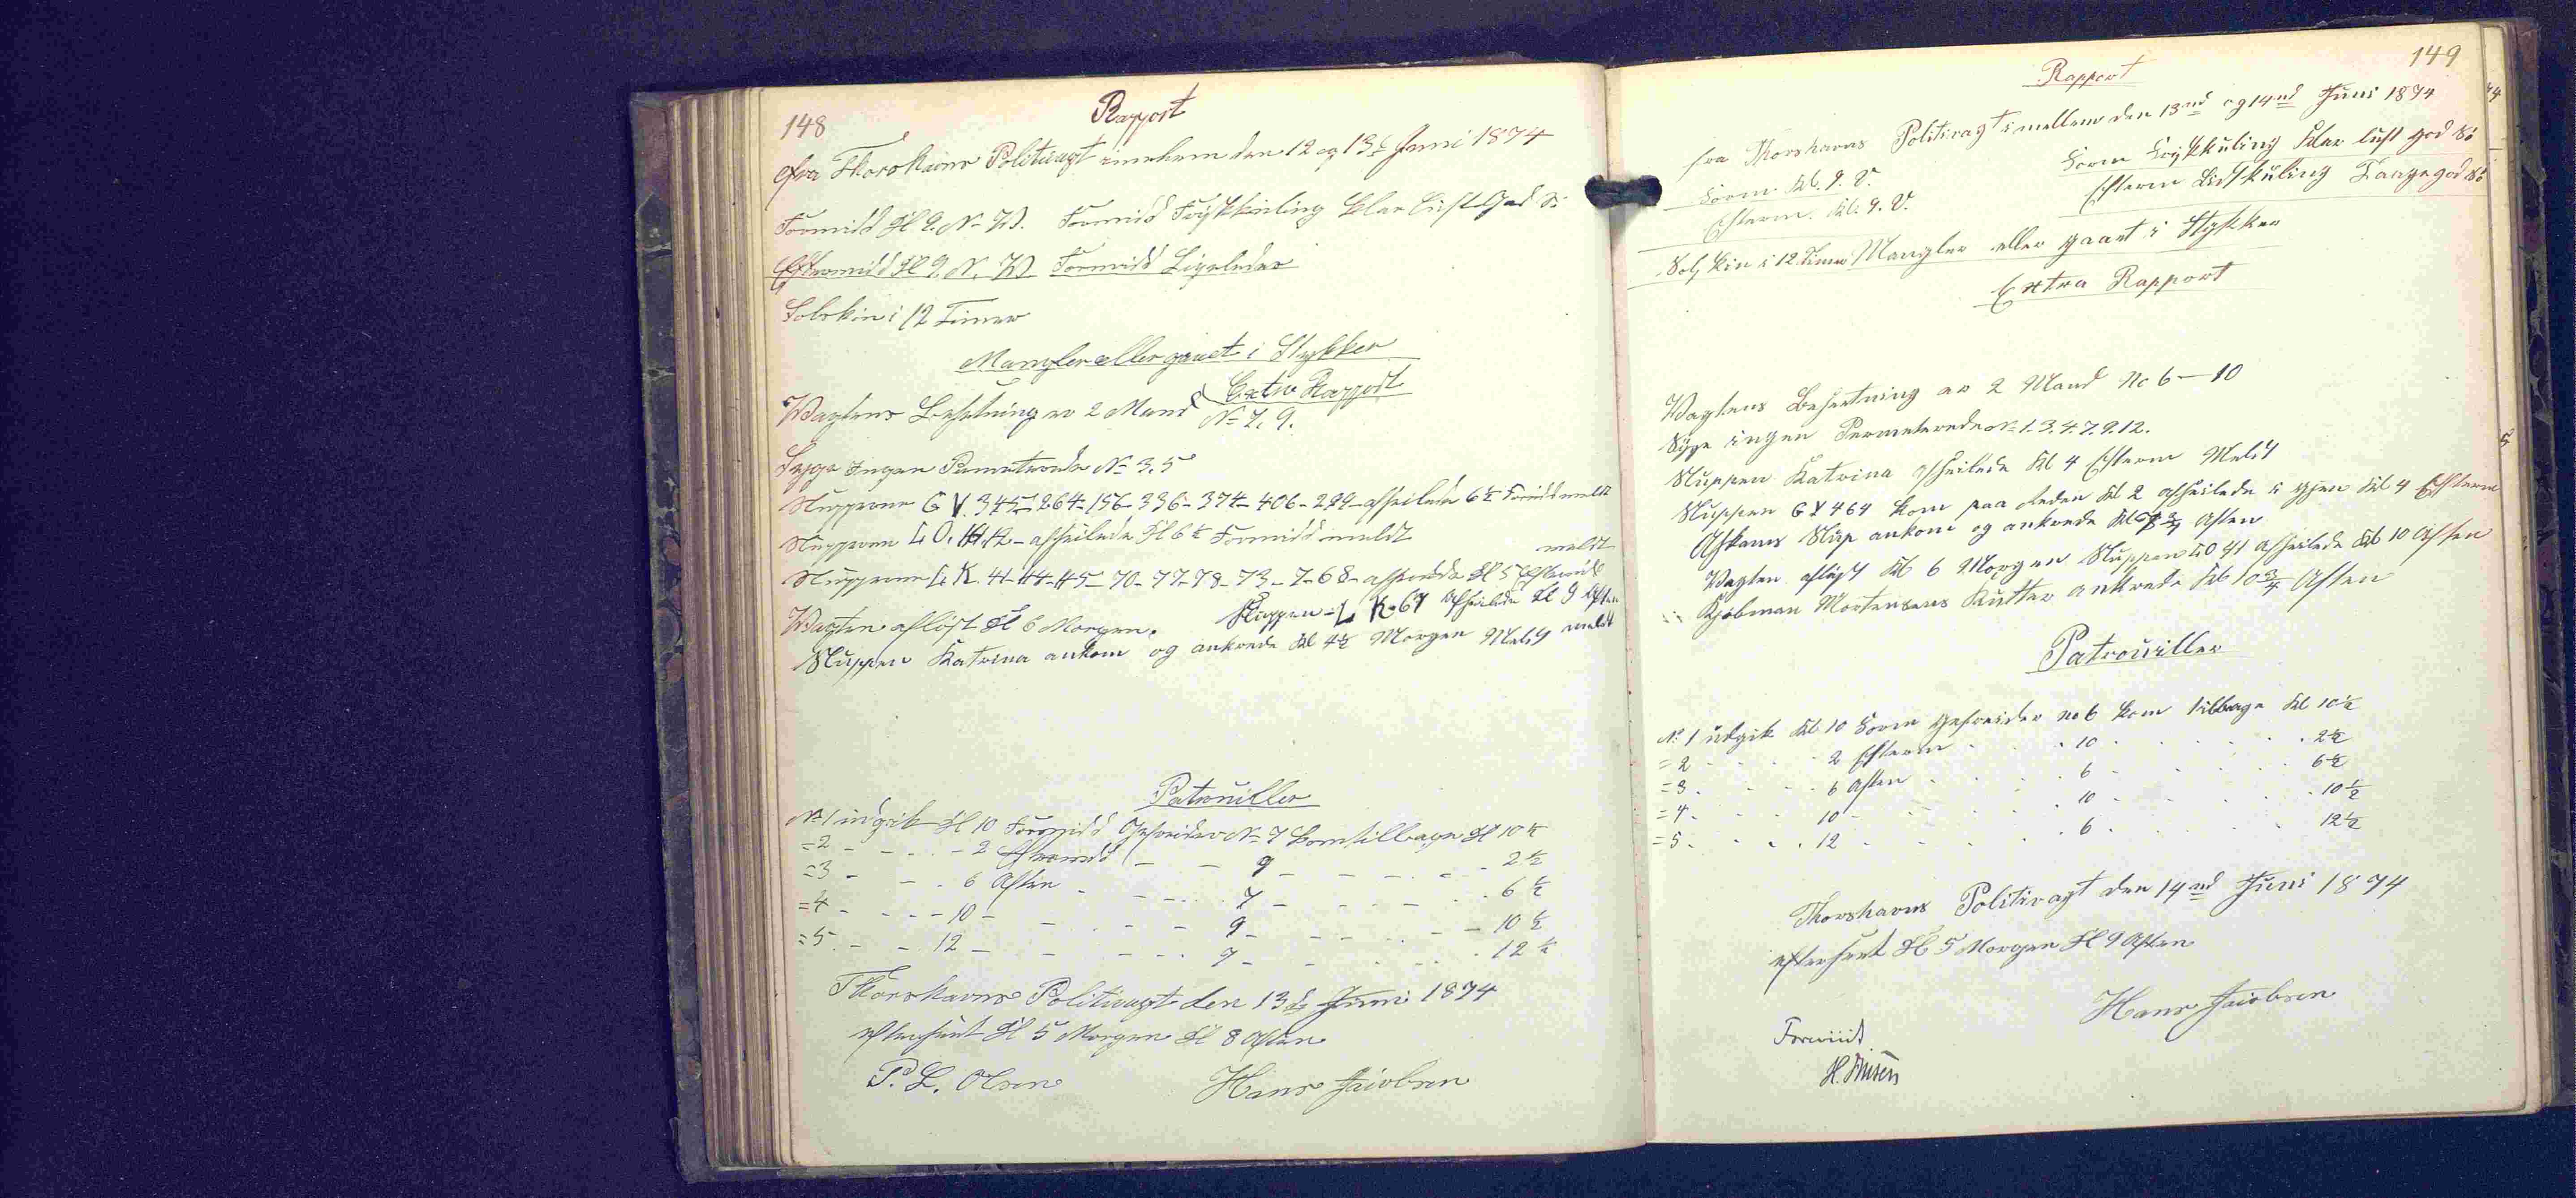 148
Rapport
fra Thorshavns Politivagt imelem den 12 og 13de Juni 1874
Formidd Kl 9. N. W. Formidd Frijskkuling klar Luft God Sö
Eftermidd Kl 9. N. W Formidd Ligeledes
Solskin i 12 Timer
Mangler eller gaaet i Stykker
Extra Rapport
Wagtens Besetning er 2 Mand No 7. 9.
Syge Ingen Permeterede No 3. 5
Slupperne G V. 345-264-156-336-374-406-299-afseilede 6½ Formidd meldt
Slupperne L O. 44.12-afseilede Kl 6½ Formidd meldt
Slupperne L K. 41-44-45-70-77-78-73-7-68-afseilede Kl 5 Eftermidd meldt
Wagten aflöst Kl 6 Morgen. Sluppen L K-67 Afseilede Kl 9 Aften meldt
Sluppen Katrina ankom og ankrede Kl 4½ Morgen Meldt
Patrouiller
No 1 udgik Kl 10 Formidd Gefreider No 7 kom tilbage Kl 10½
=2 - - - - 2 Eftermidd - - 9 - - - - 2½
=3 - - - 6 Aften - - - 7 - - - - 6½
=4 - - - 10 - - - - 9 - - - - 10½
=5 - - - 12 - - - - 7 - - - - 12½
Thorshavns Politivagt den 13de Juni 1874
efterseet Kl 5 Morgen Kl 8 Aften
P. L. Olsen Hans Jacobsen
149
Rapport
fra Thorshavns Politivagt imellem den 13nd og 14nd Juni 1874
Form. Kl. 9. V. Form Frijskkuling klar luft god Sö
Efterm. Kl. 9. V. Efterm Lidt kuling Taage god Sö
Solskin i 12 Timer Mangler eller gaaet i Stykker
Extra Rapport
Wagtens Besettning er 2 Mand No 6-10
Syge ingen Permeterede No 1. 3. 4. 7. 9. 12.
Sluppen Katrina afseilede Kl 4 Efterm Meldt
Sluppen G V 464 kom paa Reden Kl 2 afseilede i gjen Kl 4 Efterm
Slup ankom og ankrede Aften
Vagten aflöst Kl 6 Morgen Sluppen LO 41 afseilede Kl 10 Aften
Kjöbman Mortensens Kutter ankrede Kl 10¾ Aften
Patrouiller
No 1 udgik Kl. 10 Form Gefreider no 6 kom tilbage Kl 10½
=2 . . . . 2 Efterm . . . 10 . . . . 2½
=3 . . . . 6 Aften . . . 6 . . . . 6½
=4 . . . . 10 . . . . 10 . . . . 10½
=5 . . . . 12 . . . . 6 . . . . 12½
Thorshavns Politivagt den 14nd Juni 1874
efterseet Kl 5 Morgen Kl 9 Aften
Hans Jacobsen